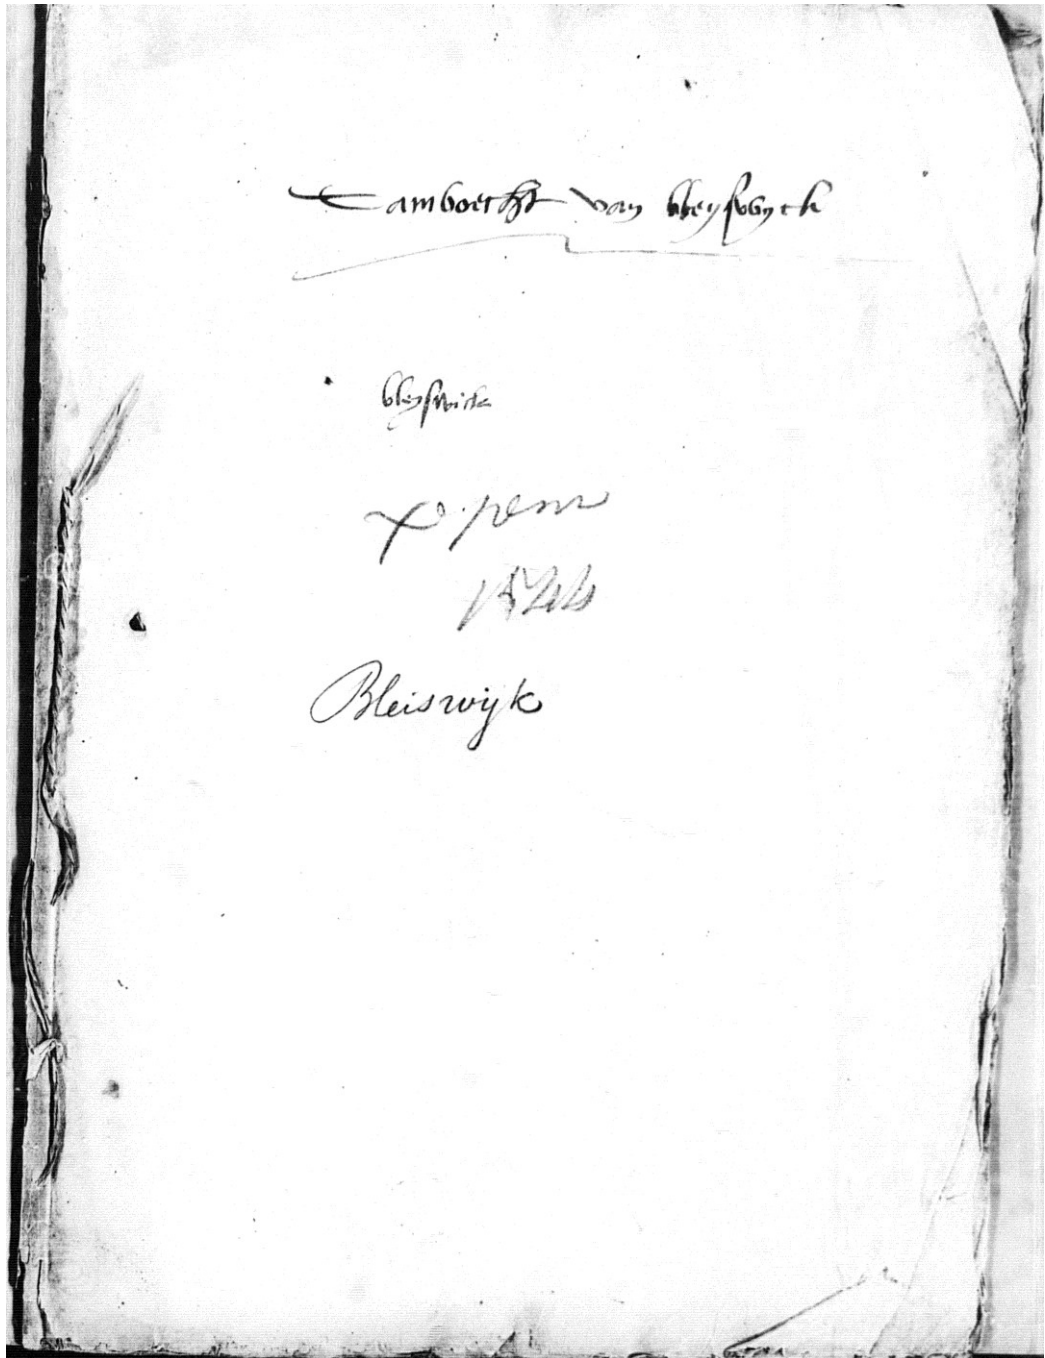 Tamboecht van bleyswyck
bleyswick
xe penn
1544
Bleiswijk